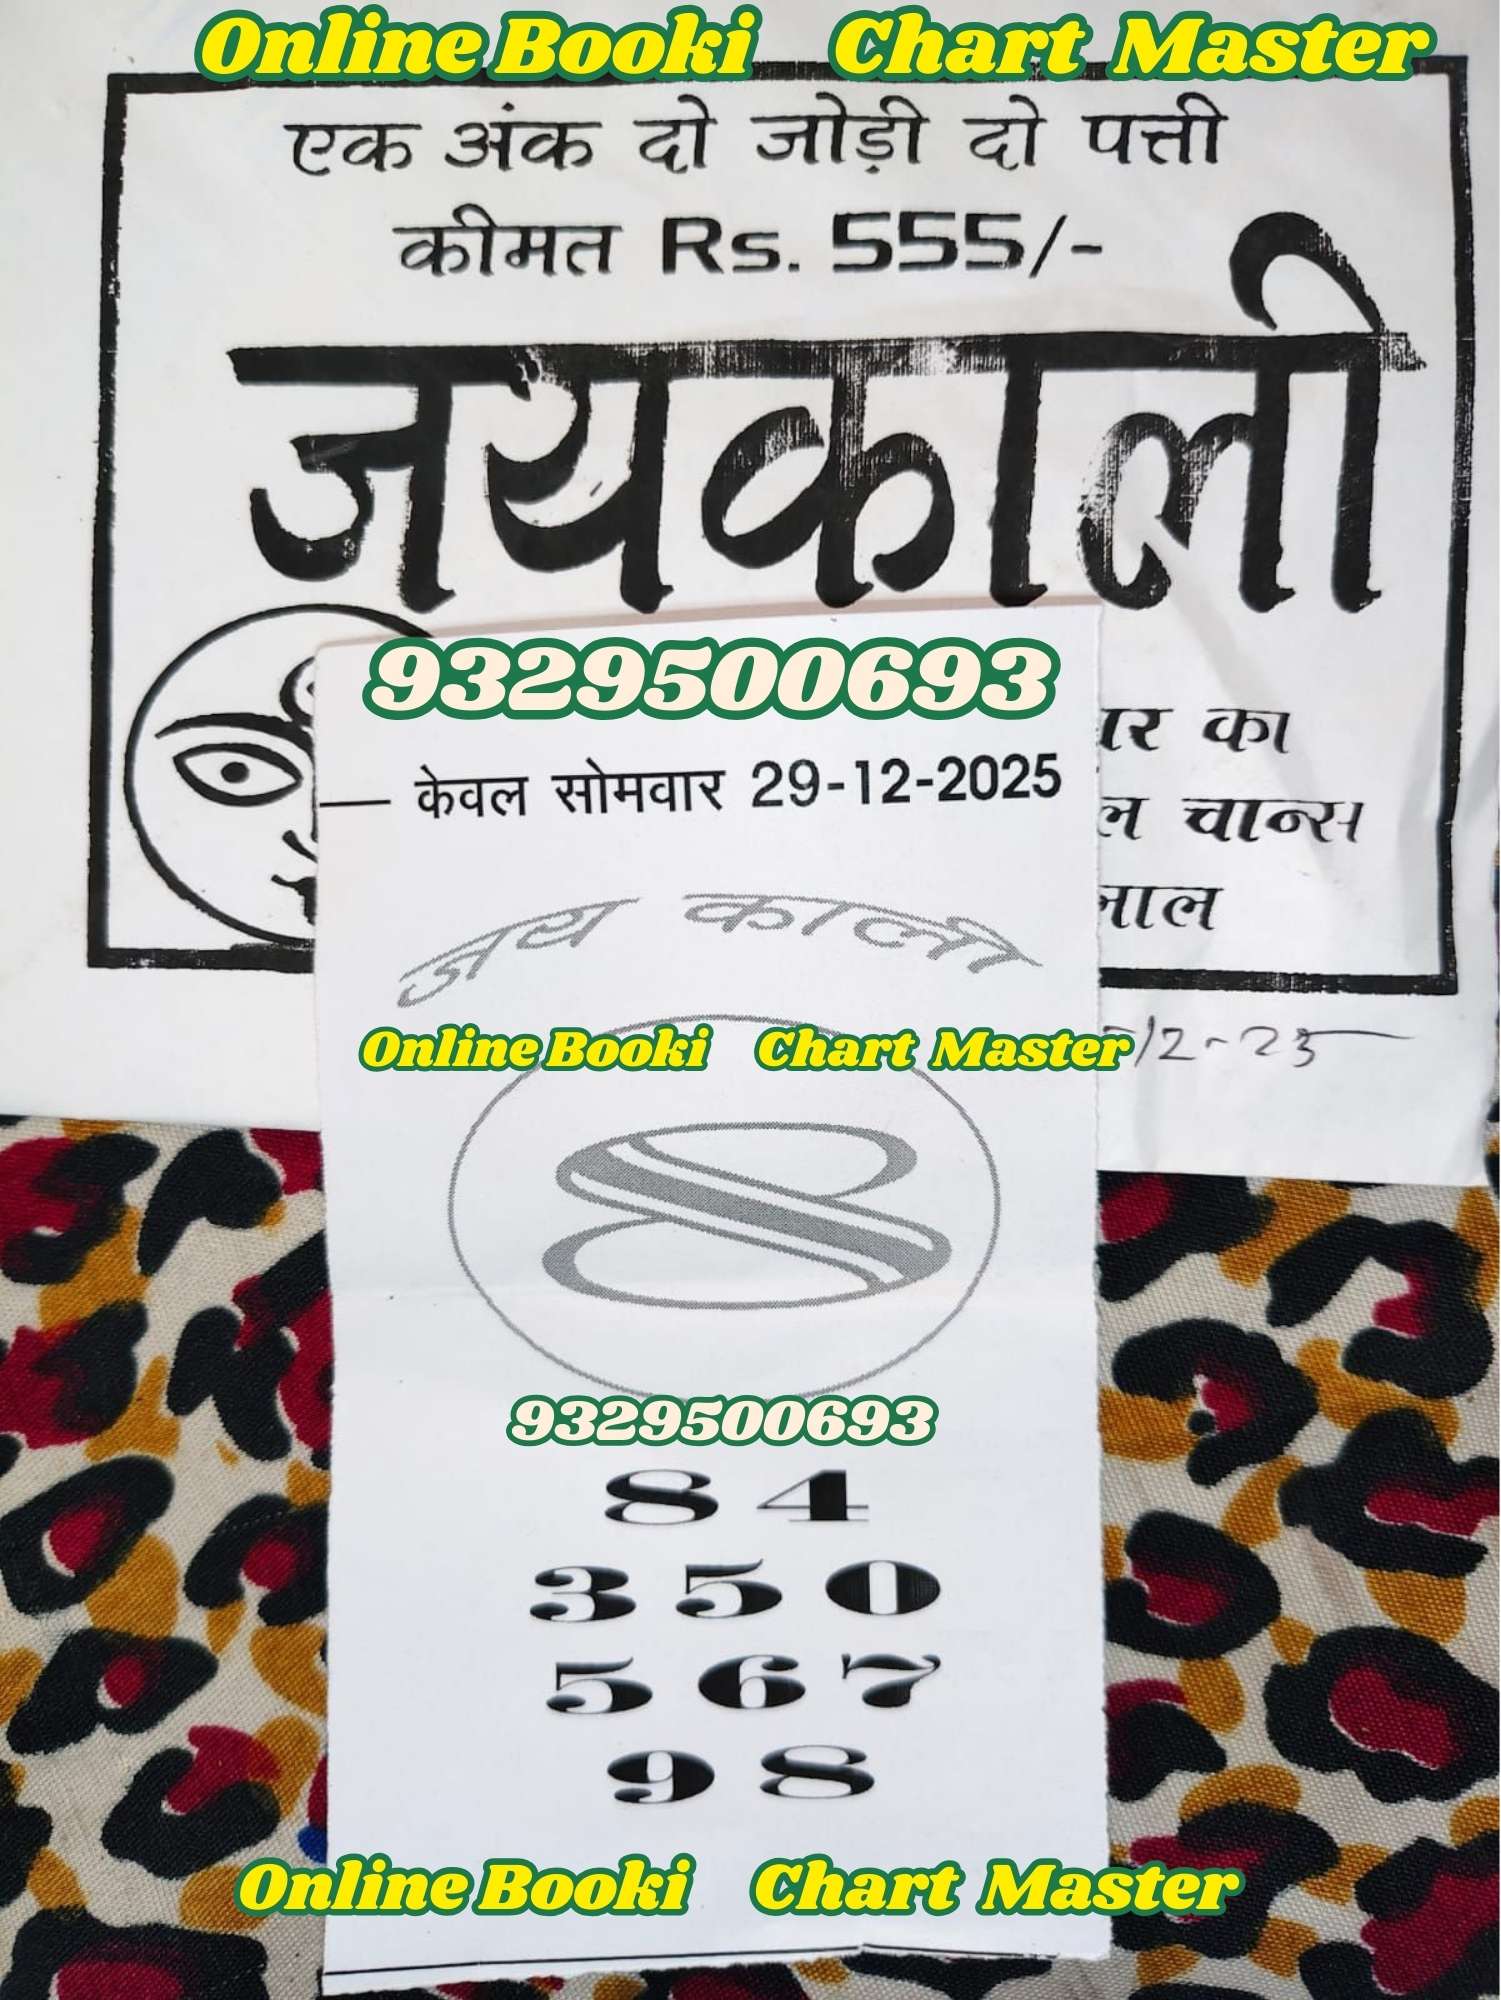 Online Booki Chart Master
एक अंक दो जोड़ी दो पत्ती
कीमत Rs. 555/-
जयकाली
9329500693
का
— केवल सोमवार 29-12-2025
चान्स
जय काली
Online Booki Chart Master
12-25
8
9329500693
84
350
567
98
Online Booki Chart Master